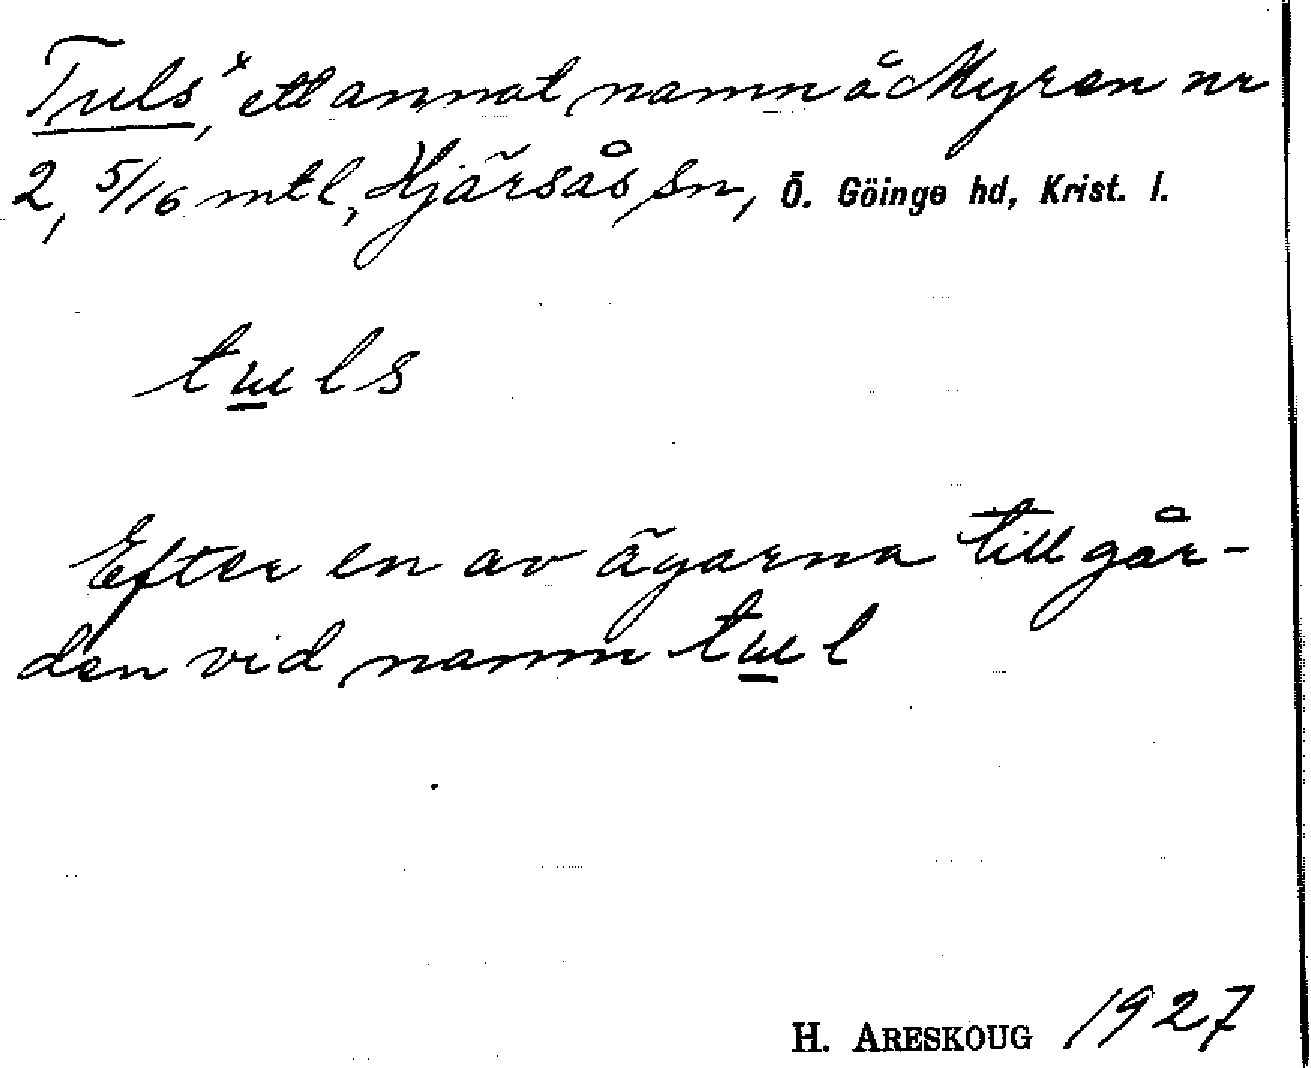 Tuls*, ett annat namn å Myren nr
2, 5/16 mtl, Hjärsås sn, Ö. Göinge hd, Krist. l.
tɯls
Efter en av ägarna till går-
den vid namn tɯl
H. ARESKOUG 1927